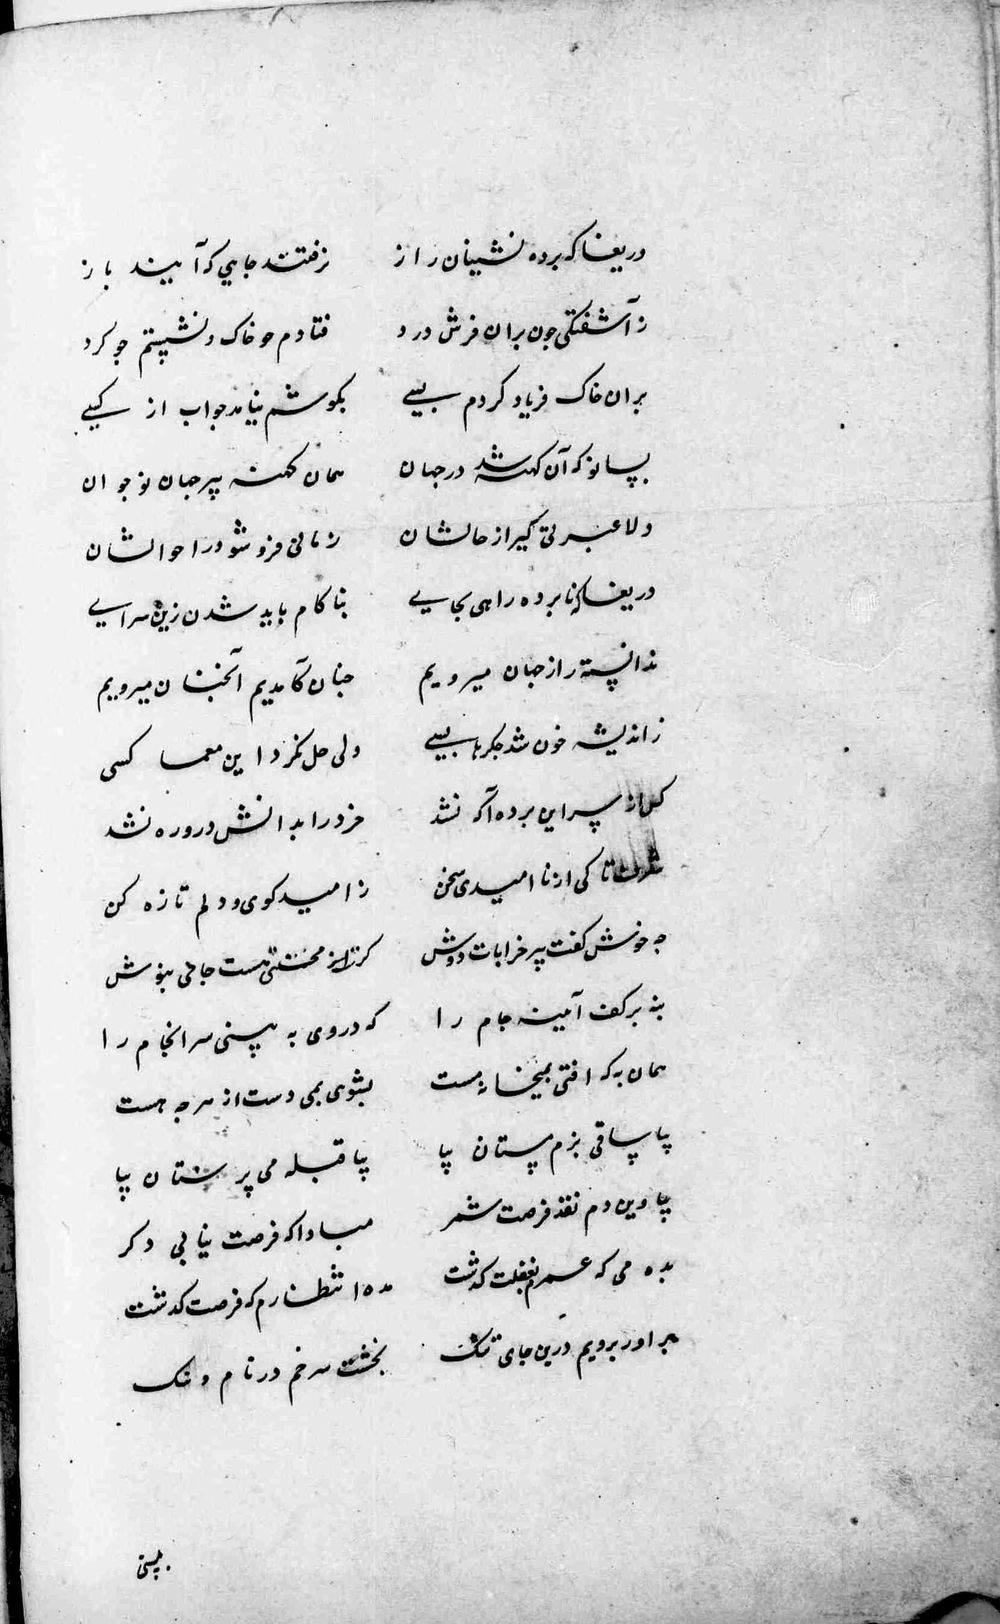 دریغا که برده نشینان راز نرفتند جایی که آیند باز
ز آشفتگی چون بران فرش درد فتادم چو خاک و نشستم چو کرد
بران خاک فریاد کردم بسی بکوشم نیامد جواب از کسی
بسا نو که آن کهنه شد در جهان همان کهنه پیر جهان نوجوان
دلا عبرتی کیر از حالشان زمانی فرو شو در احوالشان
دریغا که نابرده راهی بجایی بناکام باید شدن زین سرایی
ندانسته راز جهان میرویم چنان کامدیم آنچنان میرویم
ز اندیشه خون شد جکرها بسی ولی حل نکرد این معما کسی
کس از سر این برده آکه نشد خرد را بدانش درو ره نشد
شرف تا کی از ناامیدی سخن ز امید کوی و دلم تازه کن
چه خوش کفت پیر خرابات دوش کرت از محنتی هست جامی بنوش
بنه برکف آیینه جام را که در وی به بینی سرانجام را
همان به که افتی بمیخانه مست بشوی بمی دست از هرچه هست
بیا ساقی بزم مستان بیا بیا قبله می پرستان بیا
بیا وین دم نقد فرصت شمر مبادا که فرصت نیابی دکر
بده می که عمرم بغفلت کذشت مده انتظارم که فرصت کذشت
براور برویم درین جای تنک بخشت سر خم در نام و ننک